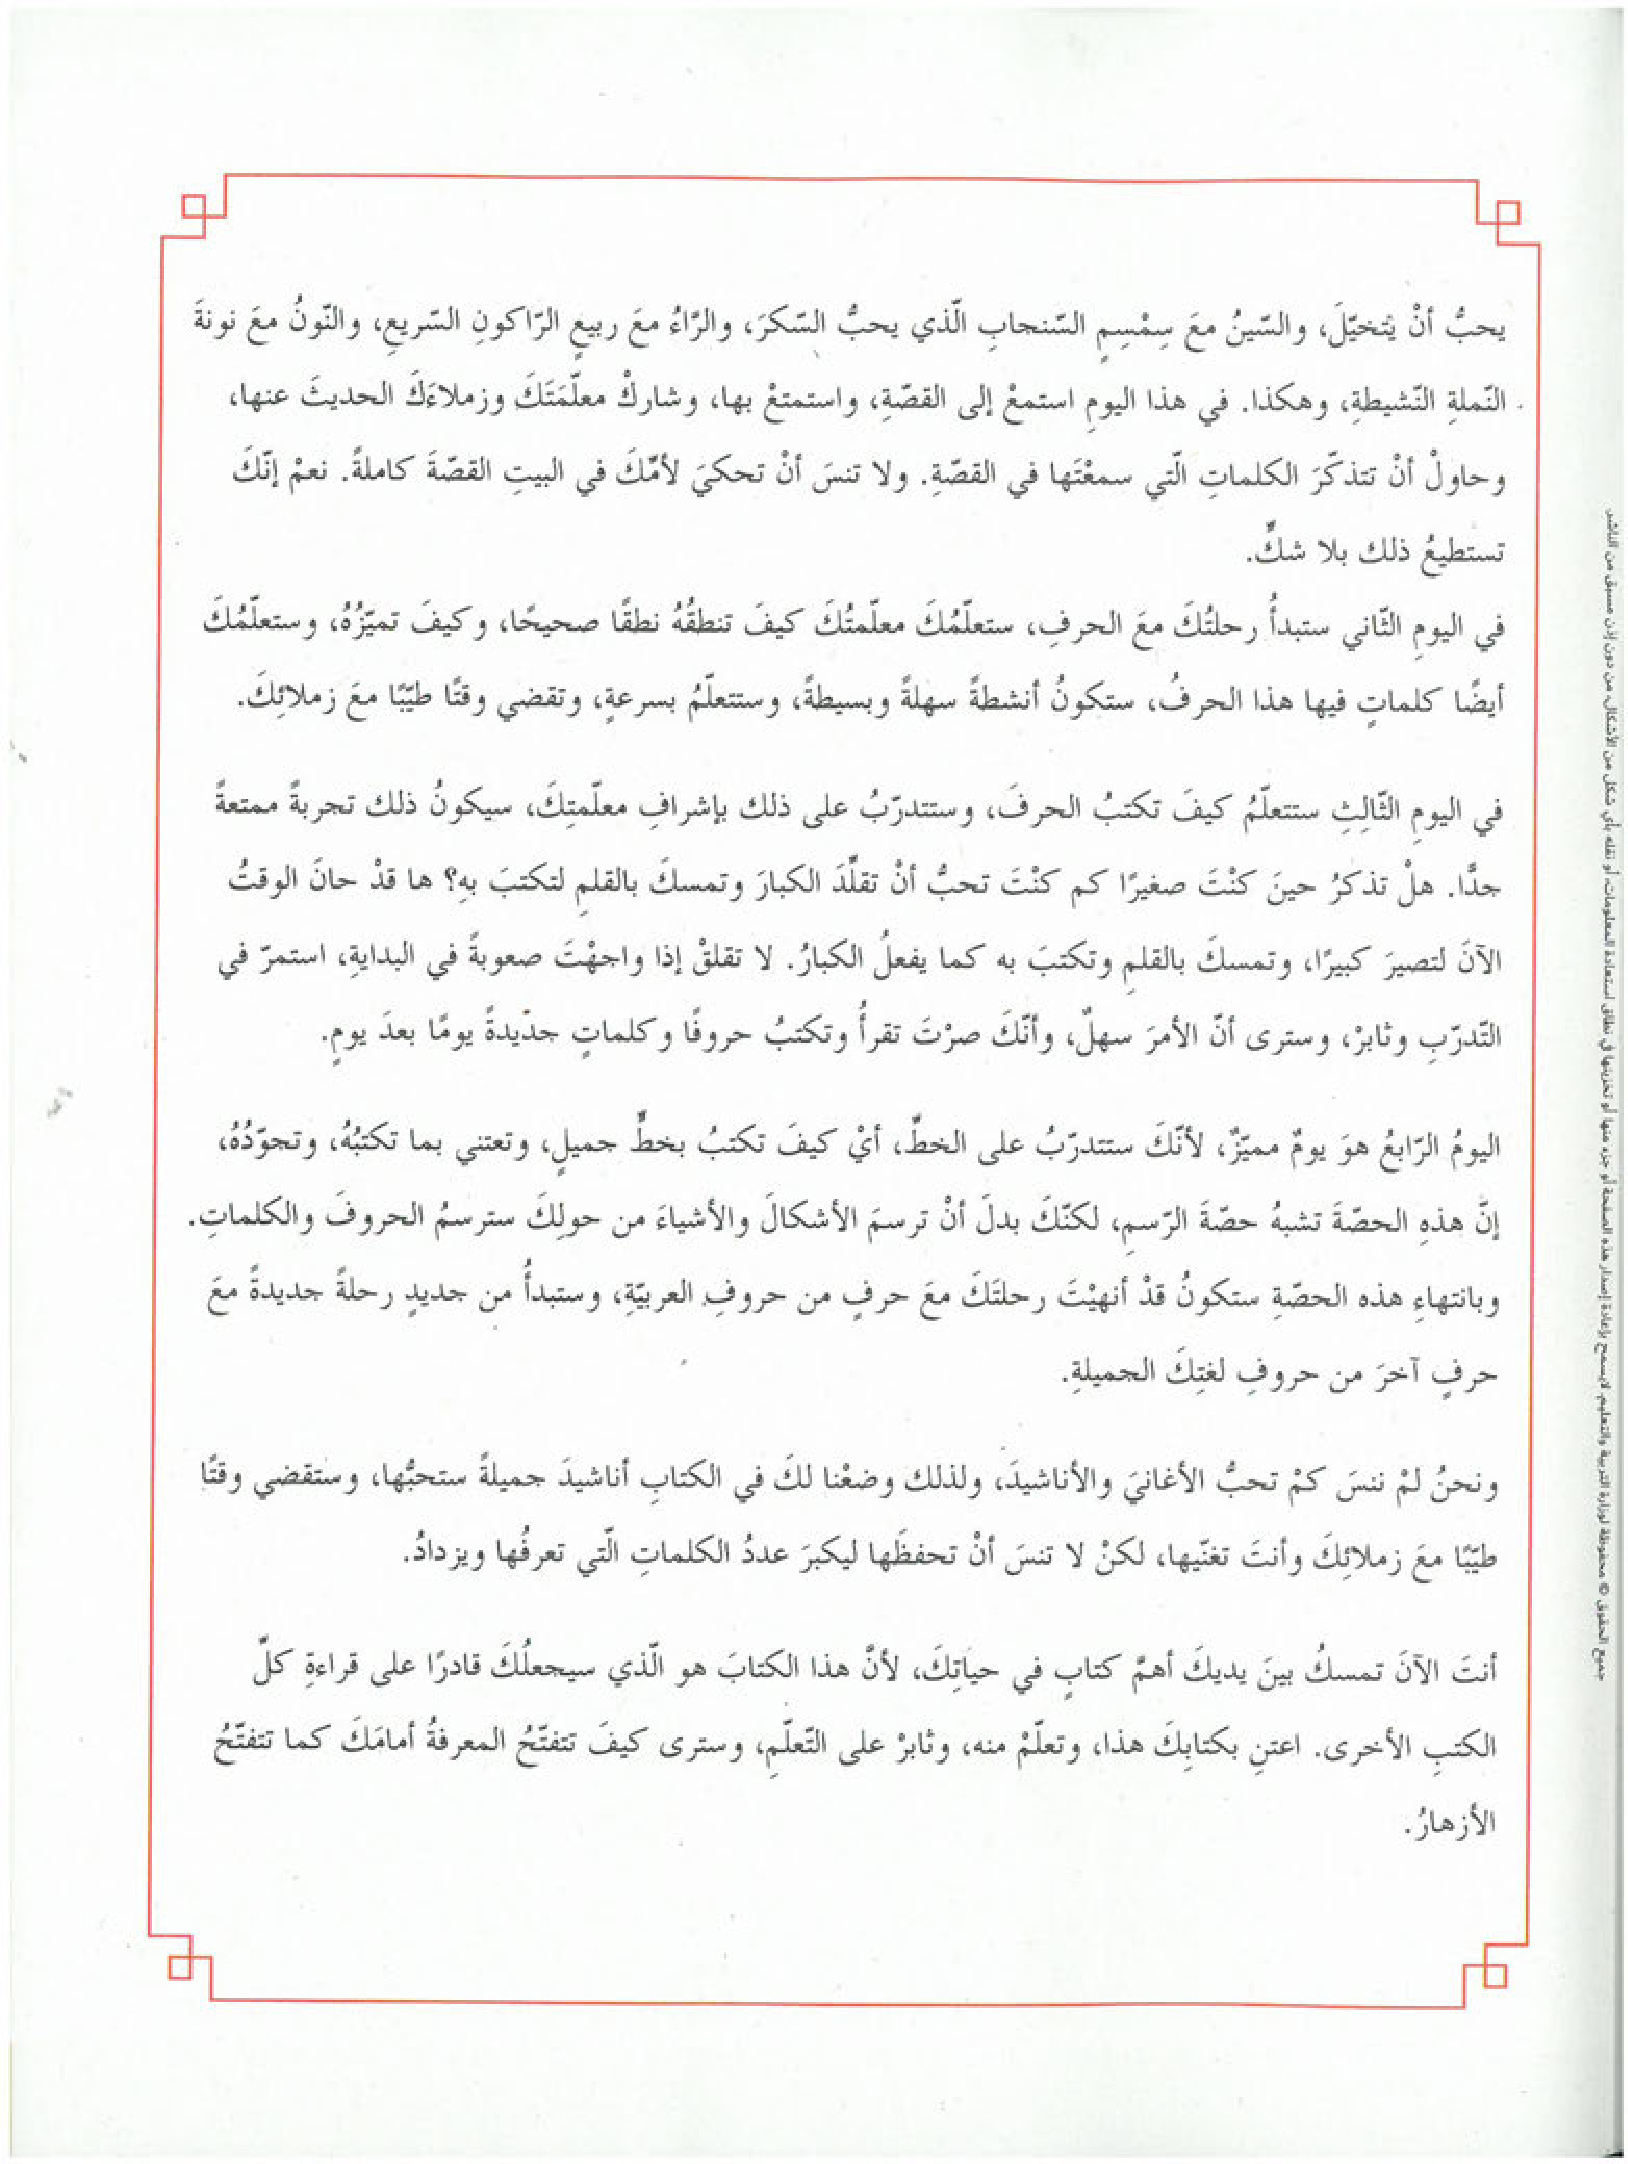 يحبُّ أنْ يُتخيّلَ، والسّينُ معَ سِمْسِمٍ السّنجابِ الّذي يحبُّ السّكرَ، والرّاءُ معَ ربيعٍ الرّاكونِ السّريعِ، والنّونُ معَ نونةَ
النّملةِ النّشيطةِ، وهكذا. في هذا اليومِ استمعْ إلى القصّةِ، واستمتعْ بها، وشاركْ معلّمَتَكَ وزملاءَكَ الحديثَ عنها،
وحاولْ أنْ تتذكّرَ الكلماتِ الّتي سمعْتَها في القصّةِ. ولا تنسَ أنْ تحكيَ لأمّكَ في البيتِ القصّةَ كاملةً. نعمْ إنّكَ
تستطيعُ ذلك بلا شكٍّ.
في اليومِ الثّاني ستبدأُ رحلتُكَ معَ الحرفِ، ستعلّمُكَ معلّمتُكَ كيفَ تنطقُهُ نطقًا صحيحًا، وكيفَ تميّزُهُ، وستعلّمُكَ
أيضًا كلماتٍ فيها هذا الحرفُ، ستكونُ أنشطةً سهلةً وبسيطةً، وستتعلّمُ بسرعةٍ، وتقضي وقتًا طيّبًا معَ زملائِكَ.
في اليومِ الثّالثِ ستتعلّمُ كيفَ تكتبُ الحرفَ، وستتدرّبُ على ذلك بإشرافِ معلّمتِكَ، سيكونُ ذلك تجربةً ممتعةً
جدًّا. هلْ تذكرُ حينَ كنْتَ صغيرًا كم كنْتَ تحبُّ أنْ تقلّدَ الكبارَ وتمسكَ بالقلمِ لتكتبَ بهِ؟ ها قدْ حانَ الوقتُ
الآنَ لتصيرَ كبيرًا، وتمسكَ بالقلمِ وتكتبَ به كما يفعلُ الكبارُ. لا تقلقْ إذا واجهْتَ صعوبةً في البدايةِ، استمرّ في
التّدرّبِ وثابرْ، وسترى أنّ الأمرَ سهلٌ، وأنّكَ صرْتَ تقرأُ وتكتبُ حروفًا وكلماتٍ جديدةً يومًا بعدَ يومٍ.
اليومُ الرّابعُ هوَ يومٌ مميّزٌ، لأنّكَ ستتدرّبُ على الخطِّ، أيْ كيفَ تكتبُ بخطٍّ جميلٍ، وتعتني بما تكتبُهُ، وتجوّدُهُ،
إنَّ هذهِ الحصّةَ تشبهُ حصّةَ الرّسمِ، لكنّكَ بدلَ أنْ ترسمَ الأشكالَ والأشياءَ من حولِكَ سترسمُ الحروفَ والكلماتِ.
وبانتهاءِ هذه الحصّةِ ستكونُ قدْ أنهيْتَ رحلتَكَ معَ حرفٍ من حروفِ العربيّةِ، وستبدأُ من جديدٍ رحلةً جديدةً معَ
حرفٍ آخرَ من حروفِ لغتِكَ الجميلةِ.
ونحنُ لمْ ننسَ كمْ تحبُّ الأغانيَ والأناشيدَ، ولذلك وضعْنا لكَ في الكتابِ أناشيدَ جميلةً ستحبُّها، وستقضي وقتًا
طيّبًا معَ زملائِكَ وأنتَ تغنّيها، لكنْ لا تنسَ أنْ تحفظَها ليكبرَ عددُ الكلماتِ الّتي تعرفُها ويزدادُ.
أنتَ الآنَ تمسكُ بينَ يديكَ أهمَّ كتابٍ في حياتِكَ، لأنَّ هذا الكتابَ هو الّذي سيجعلُكَ قادرًا على قراءةِ كلِّ
الكتبِ الأخرى. اعتنِ بكتابِكَ هذا، وتعلّمْ منه، وثابرْ على التّعلّمِ، وسترى كيفَ تتفتّحُ المعرفةُ أمامَكَ كما تتفتّحُ
الأزهارُ.
جميع الحقوق © محفوظة لوزارة التربية والتعليم. لايسمح بإعادة إصدار هذه الصفحة أو جزء منها أو تخزينها في نطاق استعادة المعلومات، أو نقله بأي شكل من الأشكال، من دون إذن مسبق من الناشر.